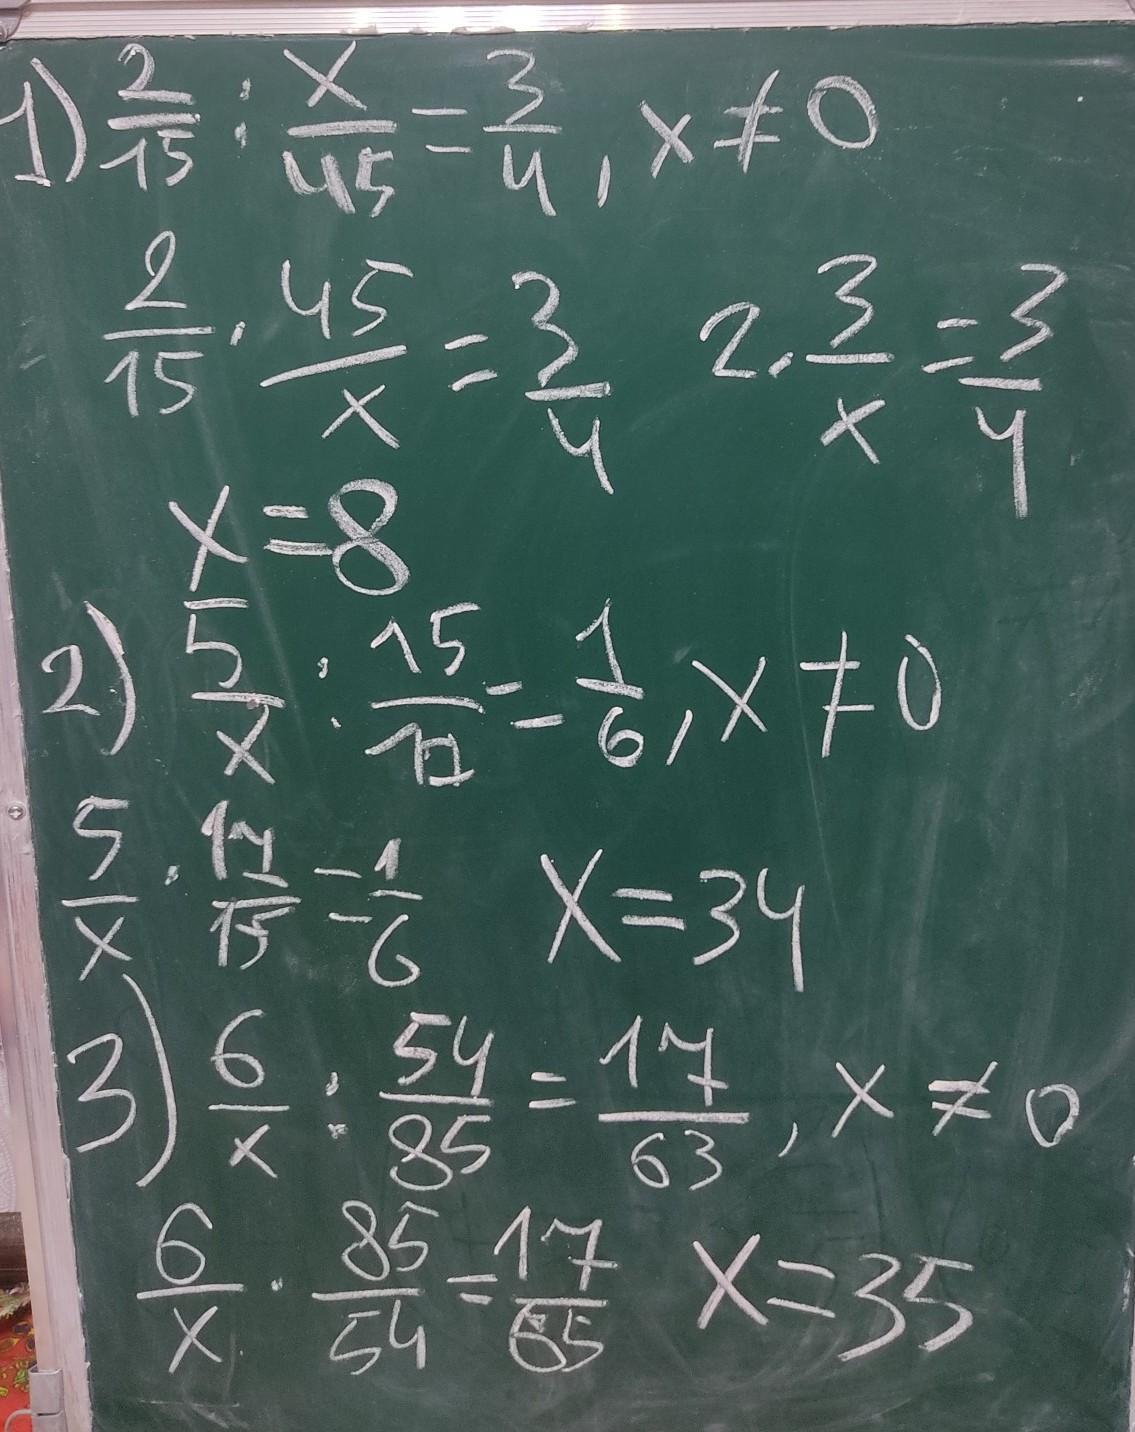 1) 2/15 : x/45 = 3/4, x ≠ 0
2/15 · 45/x = 3/4   2 · 3/x = 3/4
x = 8
2) 5/x : 15/17 = 1/6, x ≠ 0
5/x · 17/15 = 1/6   x = 34
3) 6/x : 54/85 = 17/63, x ≠ 0
6/x · 85/54 = 17/65   x = 35